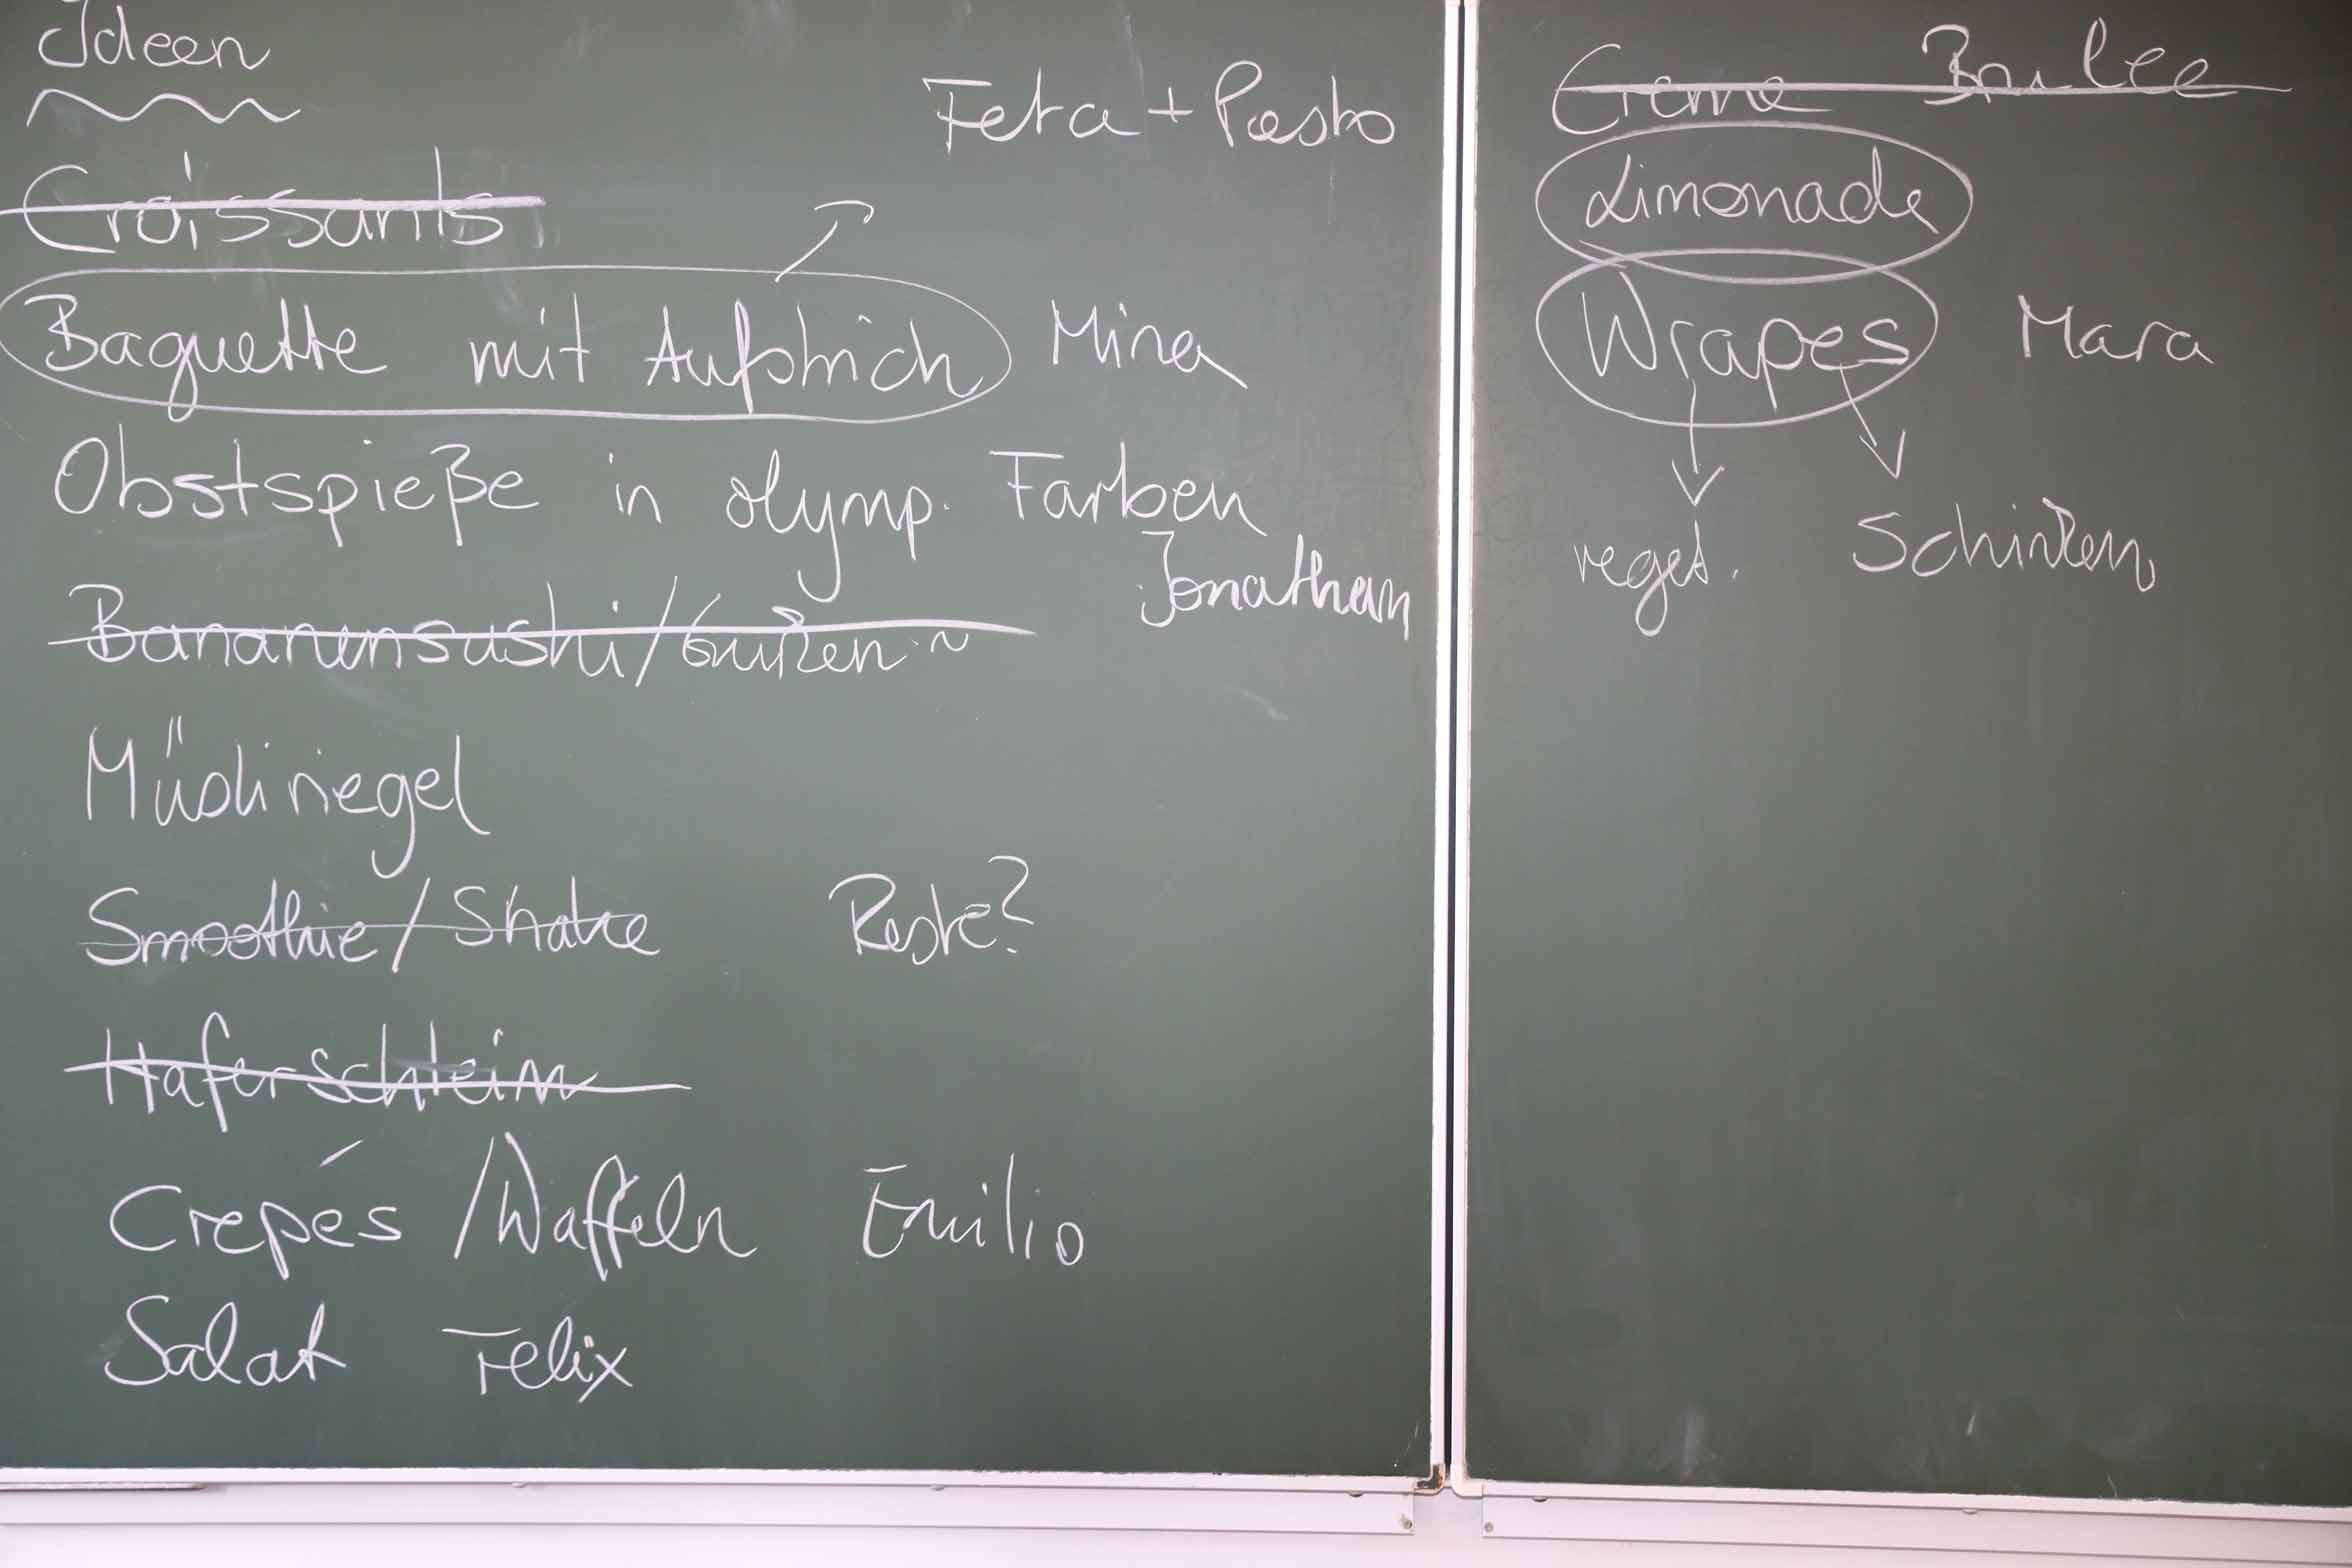 Ideen
Feta + Pesto
Croissants
Baguette mit Aufstrich Mina
Obstspieße in olymp. Farben
Jonathan
Bananensushi/Gurken
Müsliriegel
Smoothie/Shake Reste?
Haferschleim
Crepés /Waffeln Emilio
Salat Felix
Creme Brulee
Limonade
Wrapes Mara
veget. Schinken